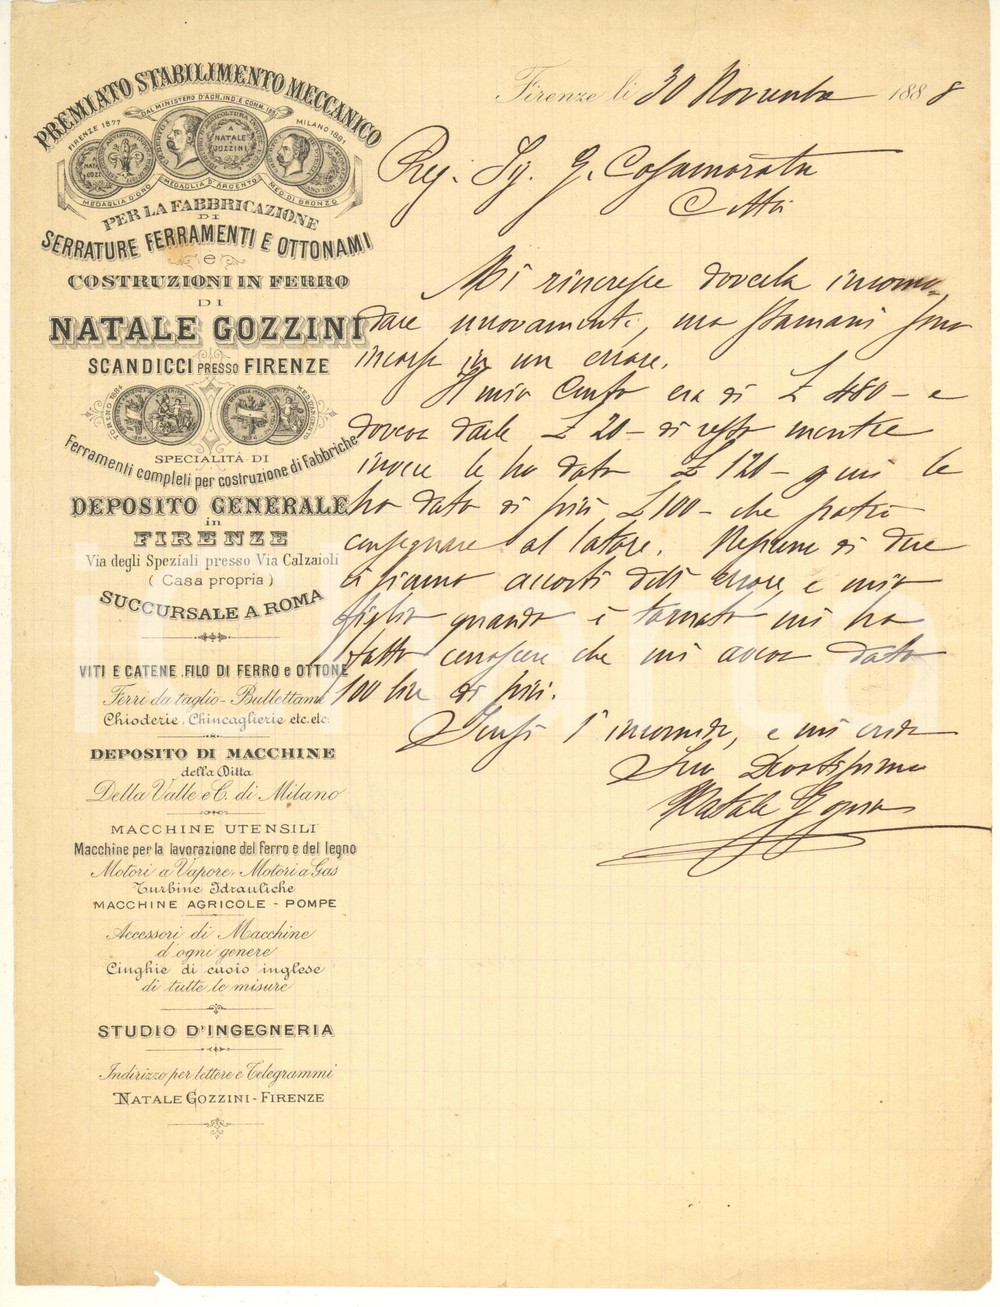 PREMIATO STABILIMENTO MECCANICO
FIRENZE 1877
DAL MINISTERO D'AGR. IND. E COMM. 188
MILANO 1881
A NATALE GOZZINI
MEDAGLIA D'ORO
MEDAGLIA D'ARGENTO
MED. DI BRONZO
PER LA FABBRICAZIONE
DI
SERRATURE FERRAMENTI E OTTONAMI
e
COSTRUZIONI IN FERRO
DI
NATALE GOZZINI
SCANDICCI PRESSO FIRENZE
TORINO 1884
SPECIALITÀ DI
Ferramenti completi per costruzione di Fabbriche
DEPOSITO GENERALE
in
FIRENZE
Via degli Speziali presso Via Calzaioli
( Casa propria )
SUCCURSALE A ROMA
VITI E CATENE, FILO DI FERRO e OTTONE
Ferri da taglio - Bullettame
Chioderie, Chincaglierie etc. etc.
DEPOSITO DI MACCHINE
della Ditta
Della Valle e C. di Milano
MACCHINE UTENSILI
Macchine per la lavorazione del ferro e del legno
Motori a Vapore, Motori a Gas
Turbine Idrauliche
MACCHINE AGRICOLE - POMPE
Accessori di Macchine
d'ogni genere
Cinghie di cuoio inglese
di tutte le misure
STUDIO D'INGEGNERIA
Indirizzo per lettere e Telegrammi
NATALE GOZZINI - FIRENZE
Firenze li 30 Novembre 1888
Preg. Sig. G. Casamorata
Città
Mi rincresce doverla incomo
dare nuovamente, ma stamani sono
incorso in un errore.
Il mio Conto era di £ 480 - e
dovea darle £ 20 - di resto mentre
invece le ho dato £ 120 - quindi le
ho dato di più £ 100 - che potrà
consegnare al latore. Nessuno di due
ci siamo accorti dell' errore, e mio
figlio quando è tornato mi ha
fatto conoscere che mi avea dato
100 lire di più.
Scusi l' incomodo, e mi creda
Suo Devotissimo
Natale Gozzini